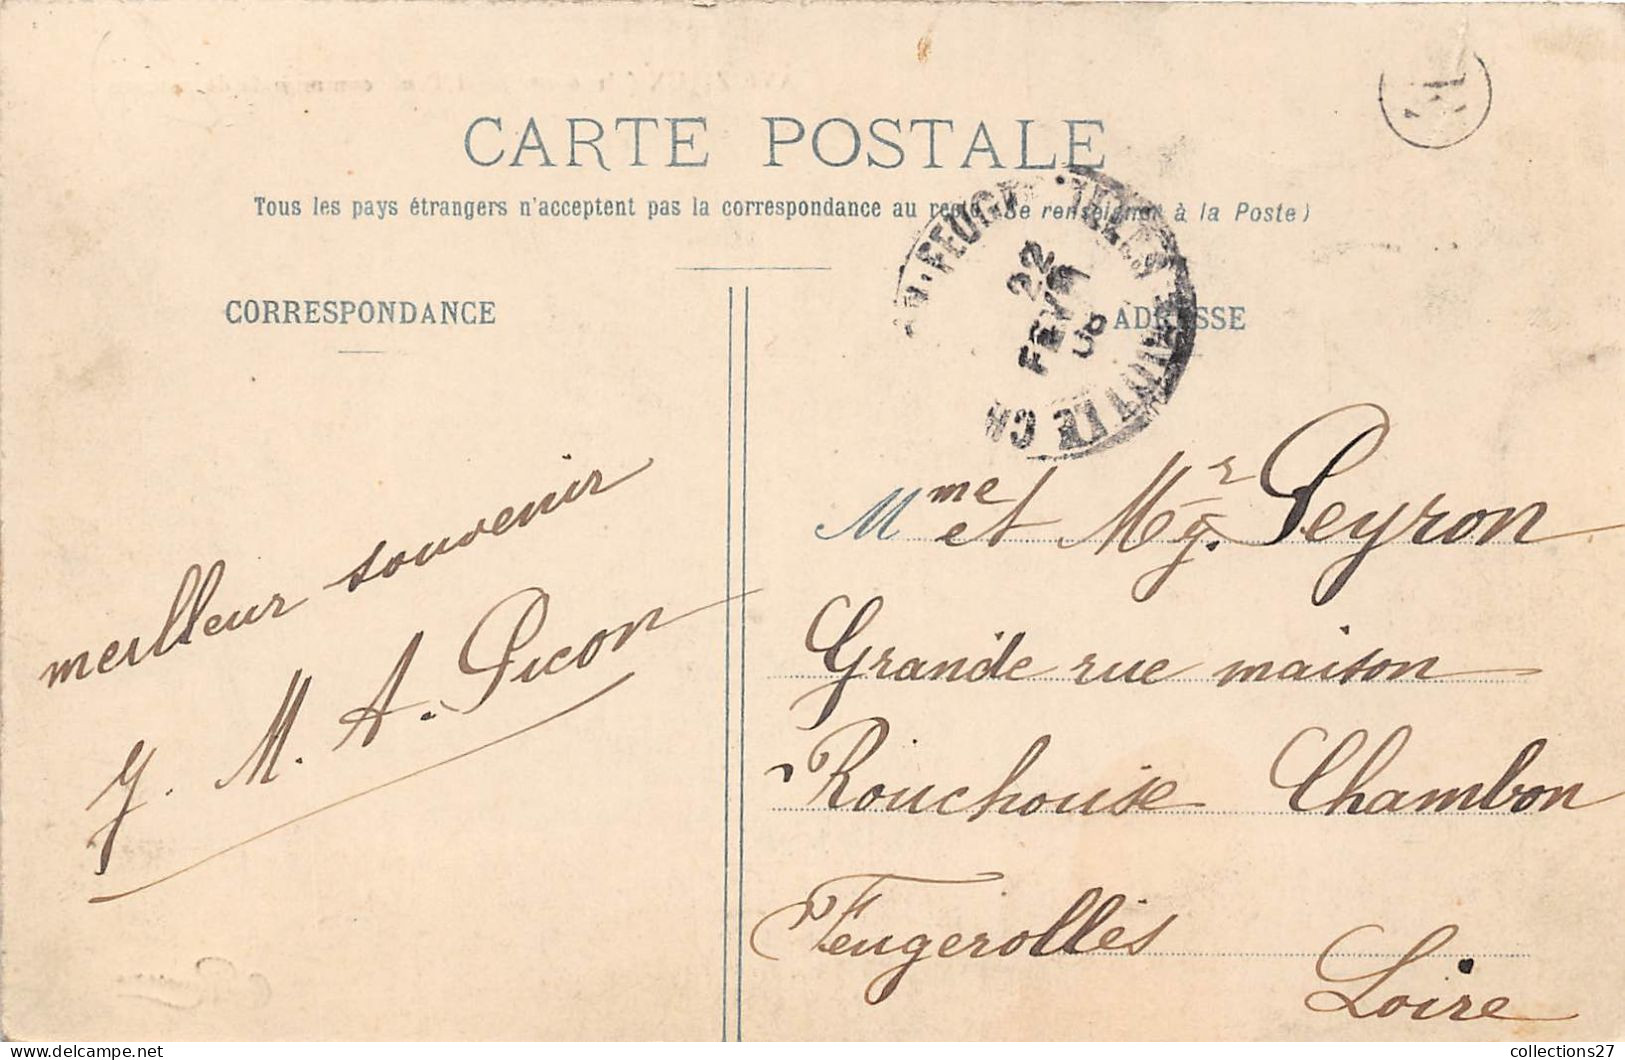 CARTE POSTALE
Tous les pays étrangers n'acceptent pas la correspondance au recto (Se renseigner à la Poste)
CORRESPONDANCE
ADRESSE
22
FEVR
08
LE CH
meilleur souvenir
J. M. A. Picon
Mme et Mr Peyron
Grande rue maison
Rouchouse Chambon
Feugerolles
Loire
collections27